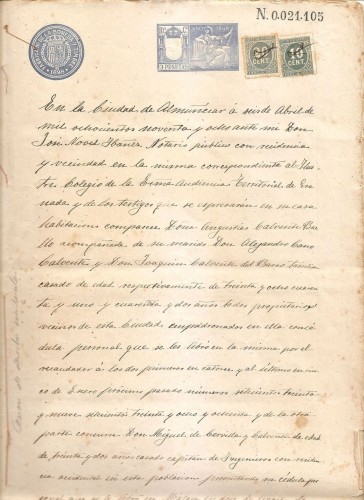 N. 0.021.105
1898
3 PESETAS
20 CENT.
10 CENT.
En la Ciudad de Almuñecar á seis de Abril de
mil ochocientos noventa y ocho ante mi Don
José Ibañez Notario público con residencia
y vecindad en la misma correspondiente al Ilus-
tre Colegio de la Excma Audiencia Territorial de Gra-
nada y de los testigos que se expresarán en su casa
habitacion comparece Doña Angustias Calvente
acompañada de su marido Don Alejandro Cano
Calvente y Don Joaquin Calvente del Barco
casado de edad respectivamente de treinta y ocho noven-
ta y uno y cuarenta y dos años todos propietarios
vecinos de esta Ciudad empadronados en ella con cé-
dula personal que se les libró en la misma por el
recaudador á los dos primeros en catorce y al último en cin-
co de Enero próximo pasado números setecientos treinta
y nueve setecientos treinta y ocho y ochenta y de la otra
parte concurre Don Miguel de Cervilla y Calvente de edad
de treinta y dos años casado capitán de Ingenieros con resi-
dencia accidental en esta poblacion presentando su cédula per-